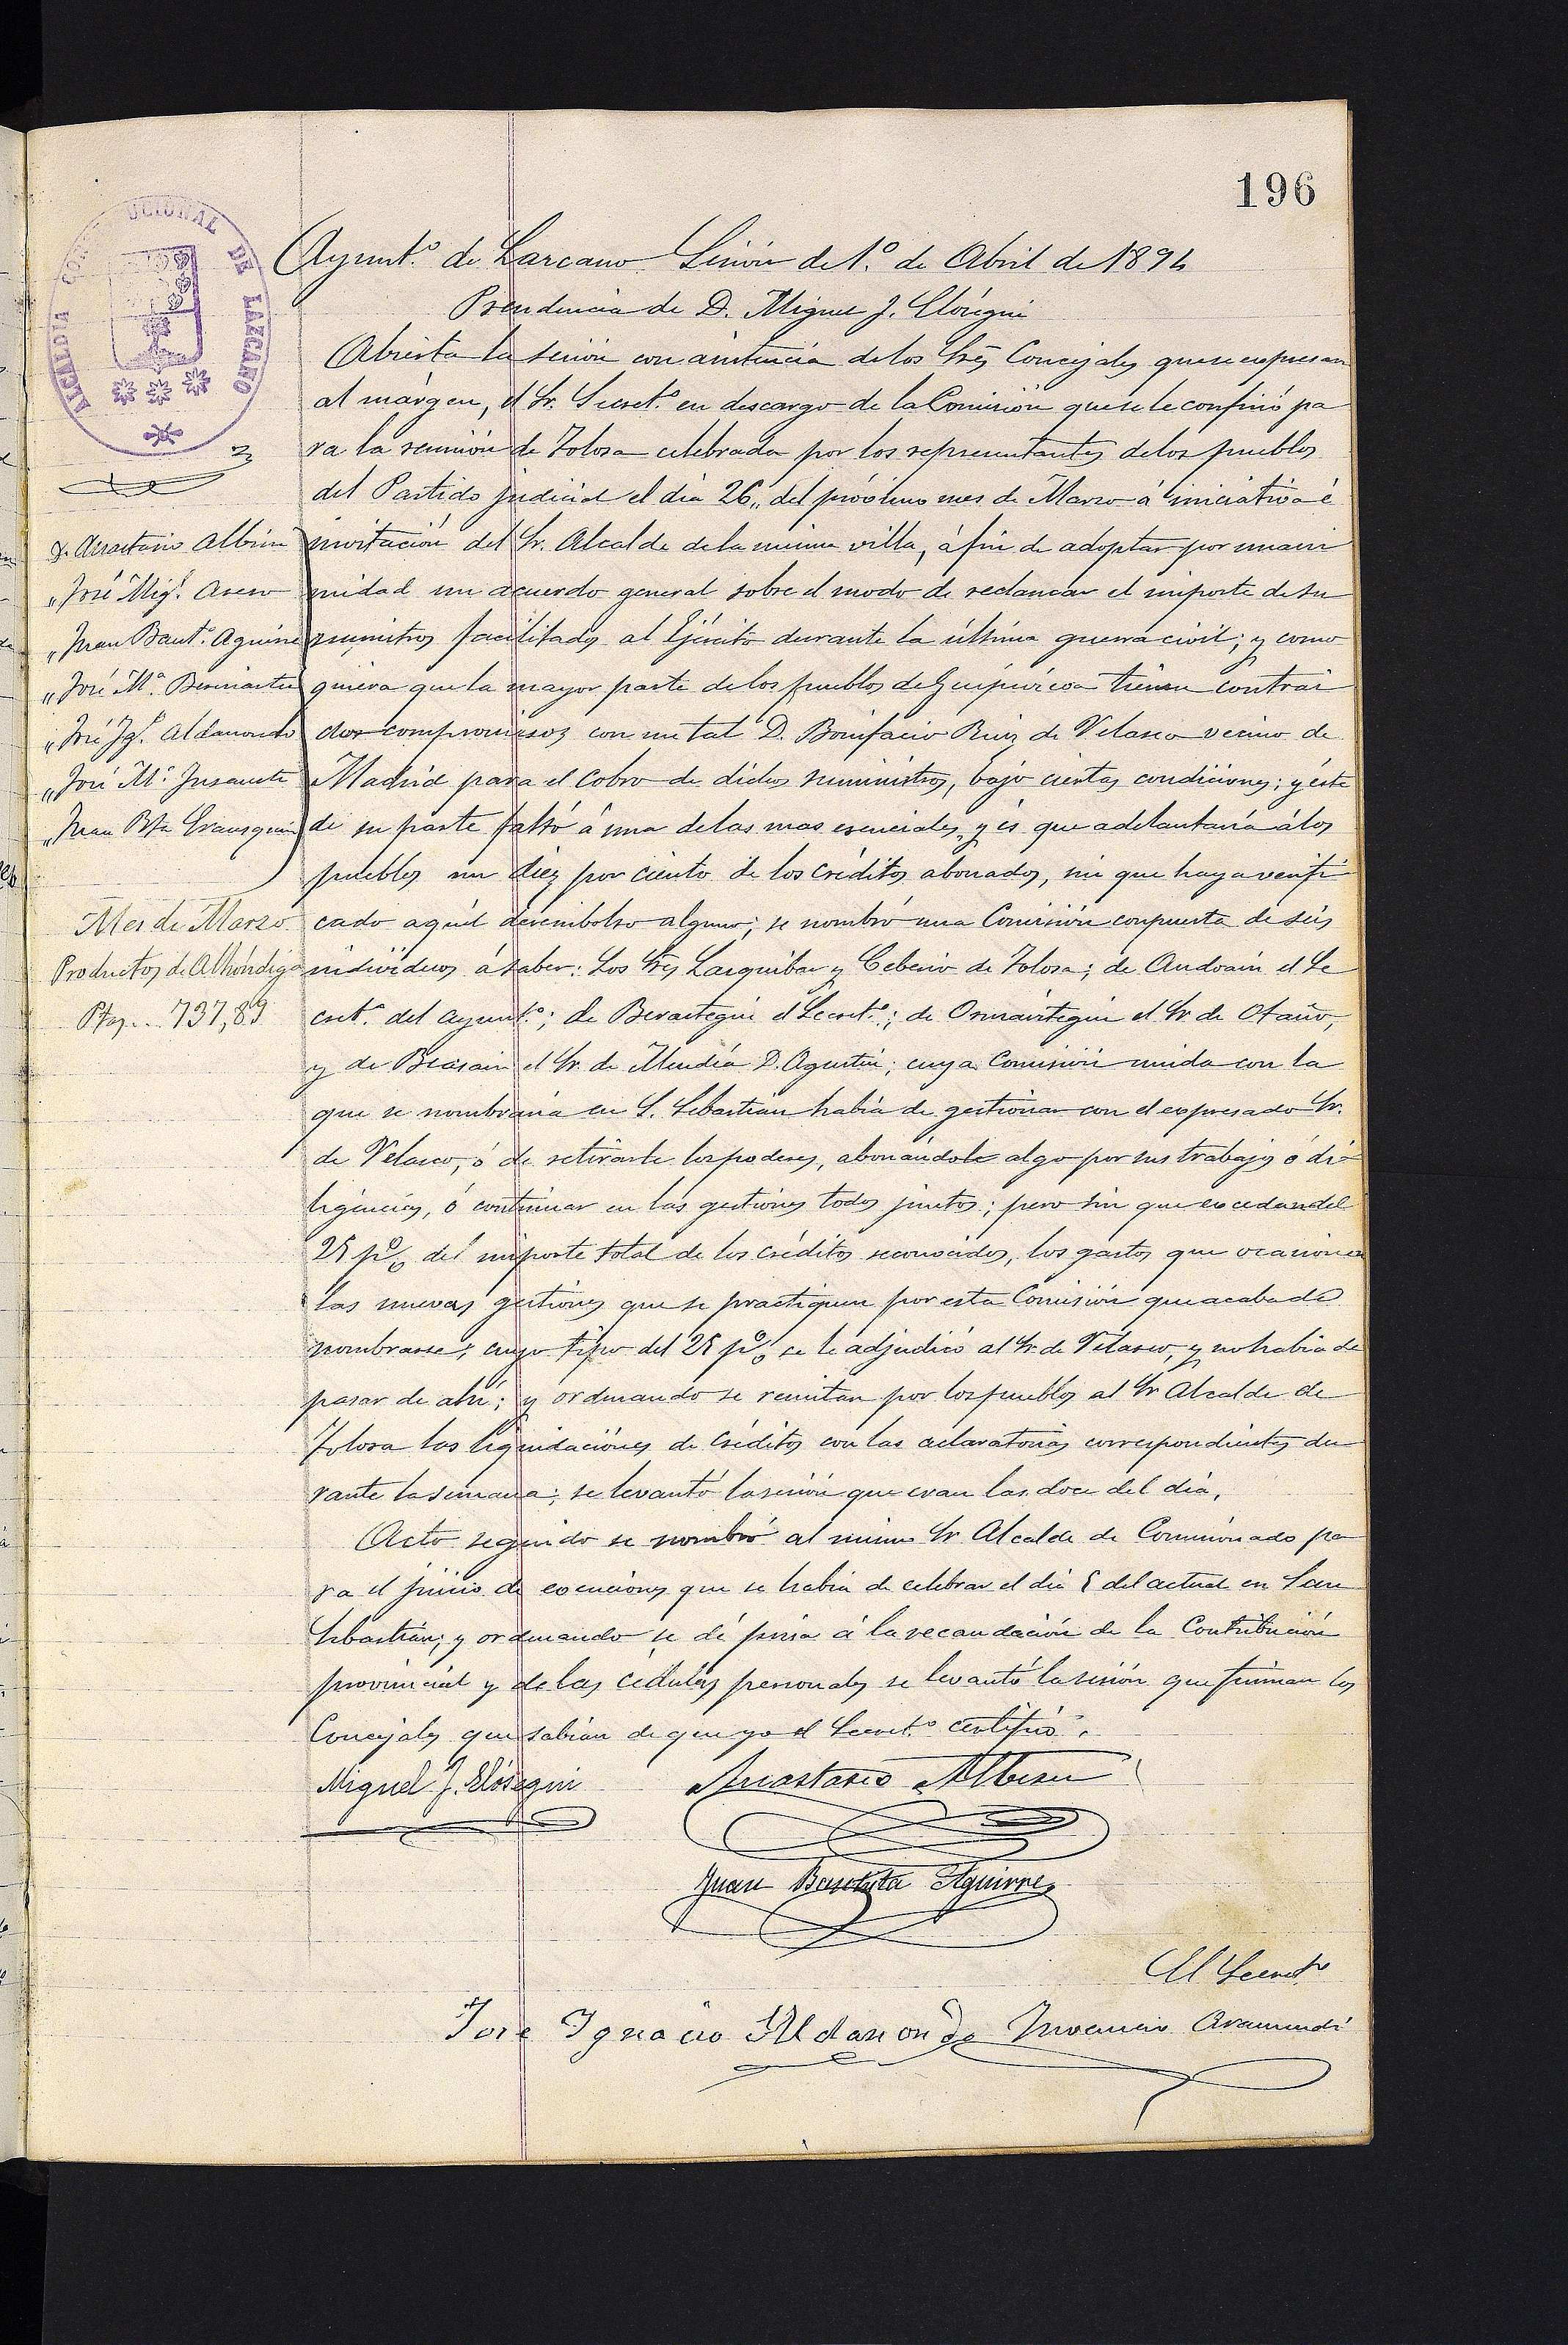 196
ALCALDIA CONSTITUCIONAL DE LAZCANO
Ayunt.º de Lazcano Sesión de 1.º de Abril de 1894
Presidencia de D. Miguel J. Elósegui
Abierta la sesión con asistencia de los Sres Concejales que se expresan
al márgen, el Sr. Secret.º en descargo de la Comisión que se le confirió pa
ra la reunión de Tolosa celebrada por los representantes de los pueblos
del Partido judicial el dia 26,, del próximo mes de Marzo á iniciativa é
invitación del Sr. Alcalde de la misma villa, á fin de adoptar por unani
midad un acuerdo general sobre el modo de reclamar el importe de su
ministros facilitados al Ejército durante la última guerra civil; y como
quiera que la mayor parte de los pueblos de Guipúzcoa tienen contrai
dos compromisos con un tal D. Bonifacio Ruiz de Velasco vecino de
Madrid para el cobro de dichos suministros, bajo ciertas condiciones; y éste
de su parte faltó á una de las mas esenciales, y és que adelantaría á los
pueblos un diez por ciento de los créditos abonados, sin que haya verifi
cado aquél desembolso alguno; se nombró una Comisión conpuesta de seis
individuos á saber: Los Sres Laquibar y Ceberio de Tolosa; de Andoain el Se
cret.º del ayunt.º; de Berastegui el Secret.º; de Ormaiztegui el Sr. de Otaño,
y de Beasain el Sr. de Mendía D. Agustin; cuya Comisión unida con la
que se nombraría en S. Sebastian había de gestionar con el expresado Sr.
de Velasco, ó de retirarle los poderes, abonándole algo por sus trabajos ó di
ligencias, ó continuar en las gestiones todos juntos; pero sin que excedan del
25 pº/o del importe total de los créditos reconocidos, los gastos que ocasionen
las nuevas gestiones que se practiquen por esta Comisión que acaba de
nombrarse; cuyo tipo del 25 pº/o se le adjudicó al Sr. de Velasco, y no habia de
pasar de ahí; y ordenando se remitan por los pueblos al Sr Alcalde de
Tolosa las liquidaciónes de créditos con las aclaratorias correspondientes du
rante la semana; se levantó la sesión que eran las doce del dia.
Acto seguido se nombró al mismo Sr Alcalde de Comisionado pa
ra el juicio de exenciones que se habia de celebrar el dia 5 del actual en San
Sebastián; y ordenando se dé prisa á la recaudación de la Contribución
provincial y de las cédulas personales se levantó la sesión que firman los
Concejales que sabian de que yo el Secret.º certifico.
D. Anastasio Albisu
,, José Mig.l Aseno
,, Juan Baut.ª Aguirre
,, José M.ª
,, José Ig.º Aldanondo
,, José M.ª Insausti
,, Juan Bta Erausquin
Mes de Marzo
Productos de Alhóndiga
Ptas... 737,89
Miguel J. Elósegui
Anastasio Albisu
Juan Bautista Aguirre
El Secret.º
Jose Ignacio Aldanondo
Inocencio Aramendi